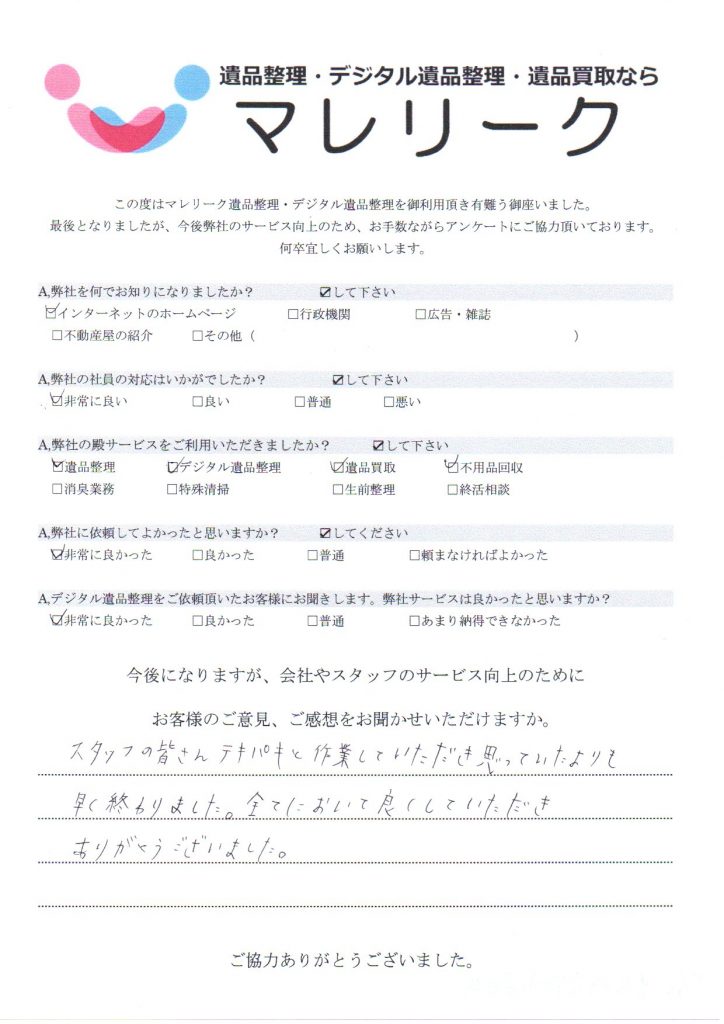 遺品整理・デジタル遺品整理・遺品買取なら
マレリーク
この度はマレリーク遺品整理・デジタル遺品整理を御利用頂き有難う御座いました。
最後となりましたが、今後弊社のサービス向上のため、お手数ながらアンケートにご協力頂いております。
何卒宜しくお願いします。
A,弊社を何でお知りになりましたか？ ☑して下さい
☑インターネットのホームページ □行政機関 □広告・雑誌
□不動産屋の紹介 □その他（ ）
A,弊社の社員の対応はいかがでしたか？ ☑して下さい
☑非常に良い □良い □普通 □悪い
A,弊社の殿サービスをご利用いただきましたか？ ☑して下さい
☑遺品整理 ☑デジタル遺品整理 ☑遺品買取 ☑不用品回収
□消臭業務 □特殊清掃 □生前整理 □終活相談
A,弊社に依頼してよかったと思いますか？ ☑してください
☑非常に良かった □良かった □普通 □頼まなければよかった
A,デジタル遺品整理をご依頼頂いたお客様にお聞きします。弊社サービスは良かったと思いますか？
☑非常に良かった □良かった □普通 □あまり納得できなかった
今後になりますが、会社やスタッフのサービス向上のために
お客様のご意見、ご感想をお聞かせいただけますか。
スタッフの皆さんテキパキと作業していただき思っていたよりも
早く終わりました。全てにおいて良くしていただき
ありがとうございました。
ご協力ありがとうございました。